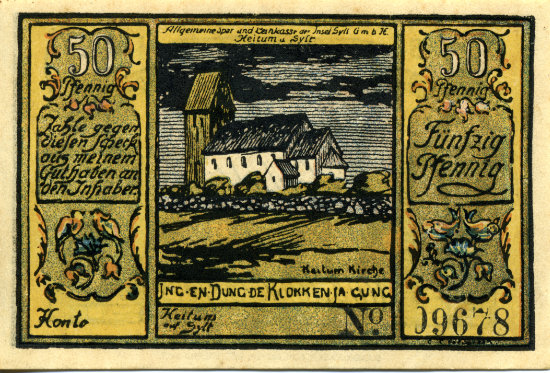 Allgemeine Spar und Leihkasse der Insel Sylt G m b H
Keitum a Sylt
50
Pfennig
Zahle gegen
diesen Scheck
aus meinem
Guthaben an
den Inhaber.
Konto
Keitum Kirche
ING·EN·DUNG·DE KLOKKEN·JA GUNG
Keitum
auf Sylt
No
50
Pfennig
Fünfzig
Pfennig
09678